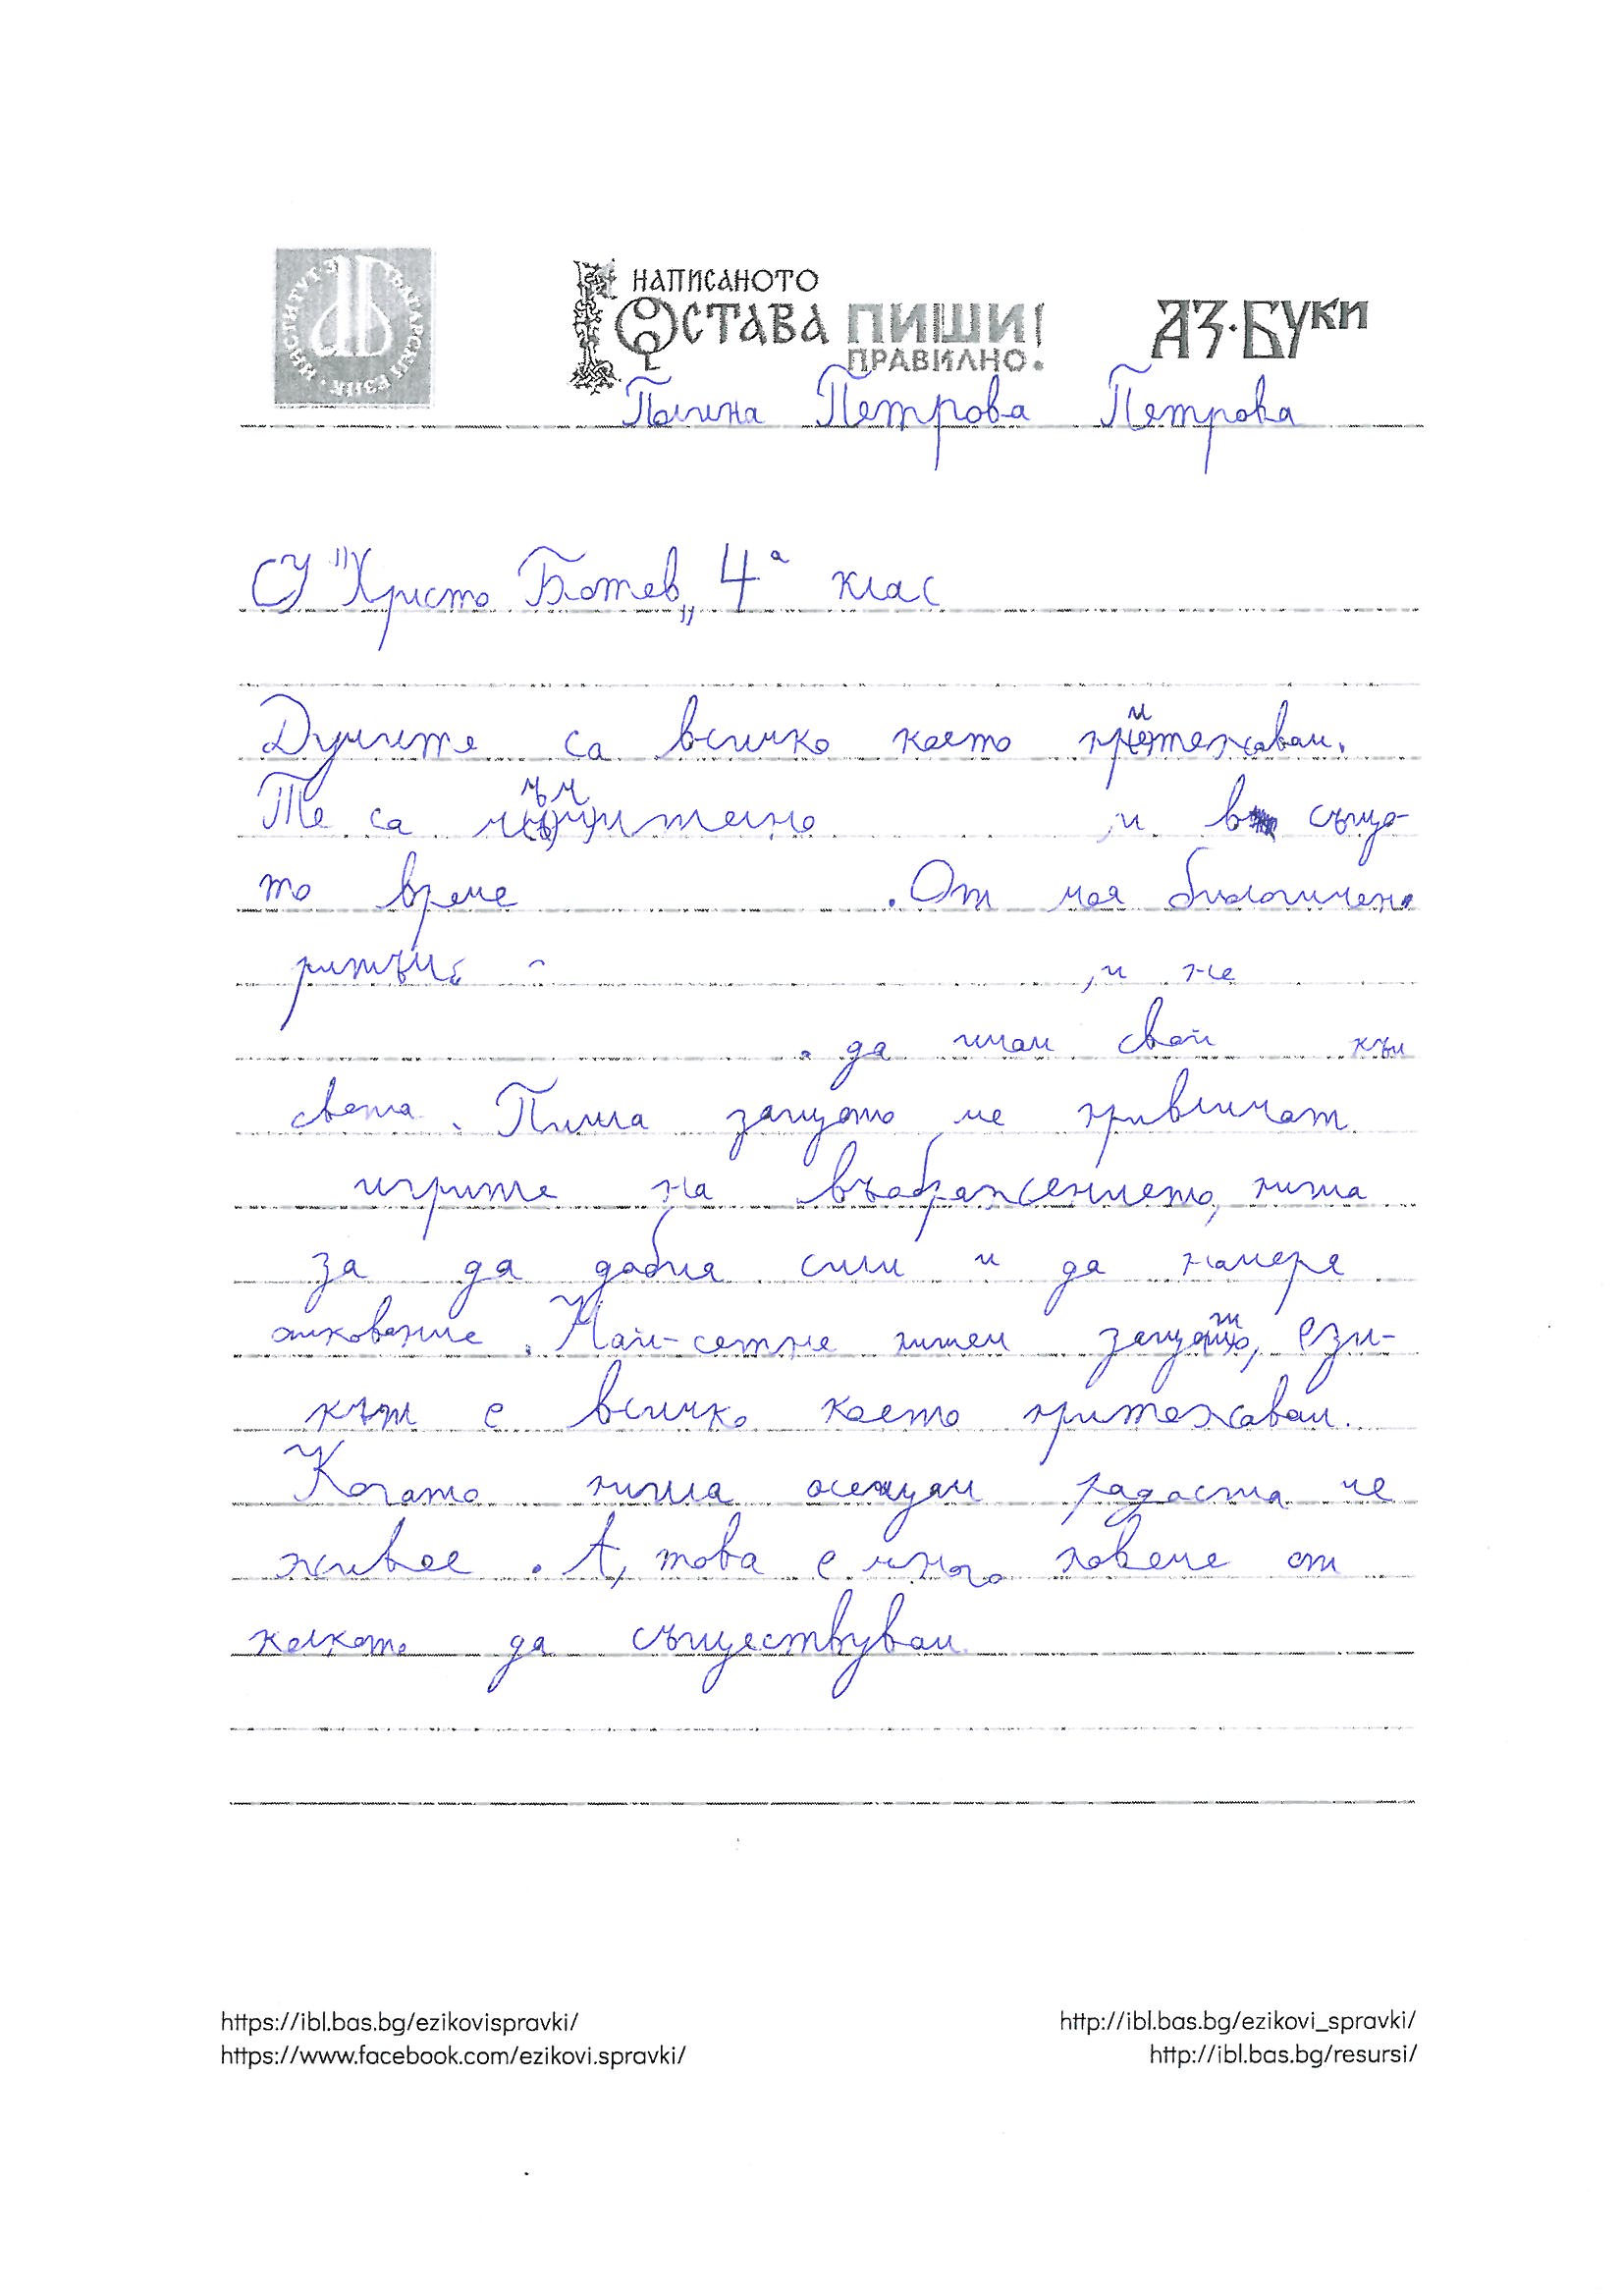 ИНСТИТУТ ЗА БЪЛГАРСКИ ЕЗИК
НАПИСАНОТО
ОСТАВА ПИШИ!
ПРАВИЛНО.
АЗ·БУКИ
Полина Петрова Петрова
СУ "Христо Ботев„ 4а клас
Думите са всичко което притежавам.
Те са и в също-
то време .От моя биологичен
ритъм , и не
. да имам свой към
света. Пиша защото ме привличат
игрите на въображението, пиша
за да добия сили и да намеря
вдъхновение. Най-сетне пишем защото, ези-
кът е всичко което притежавам.
Когато пиша осещам радоста че
живее. А, това е много повече от
колкото да съществувам
https://ibl.bas.bg/ezikovispravki/ http://ibl.bas.bg/ezikovi_spravki/
https://www.facebook.com/ezikovi.spravki/ http://ibl.bas.bg/resursi/